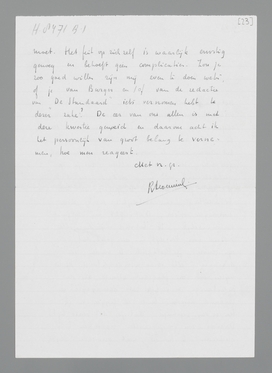 [23]
moet. Het feit op zichzelf is waarlijk ernstig
genoeg en behoeft geen complicaties. Zou je
zoo goed willen zijn mij even te doen weten,
of je van Burger en/of van de redactie
van De Standaard iets vernomen hebt, in
deze zaak? De eer van ons allen is met
deze kwestie gemoeid en daarom acht ik
het persoonlijk van groot belang te verne-
men, hoe men reageert.
Met vr. gr.